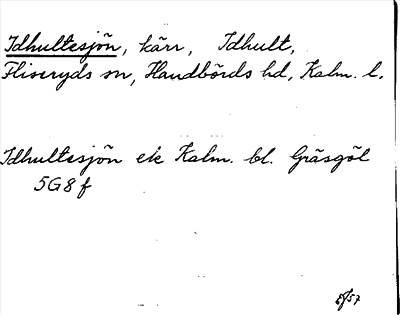 Idhultesjön, kärr, Idhult,
Fliseryds sn, Handbörds hd, Kalm. l.
Idhultesjön ek Kalm. bl. Gräsgöl
5G8f